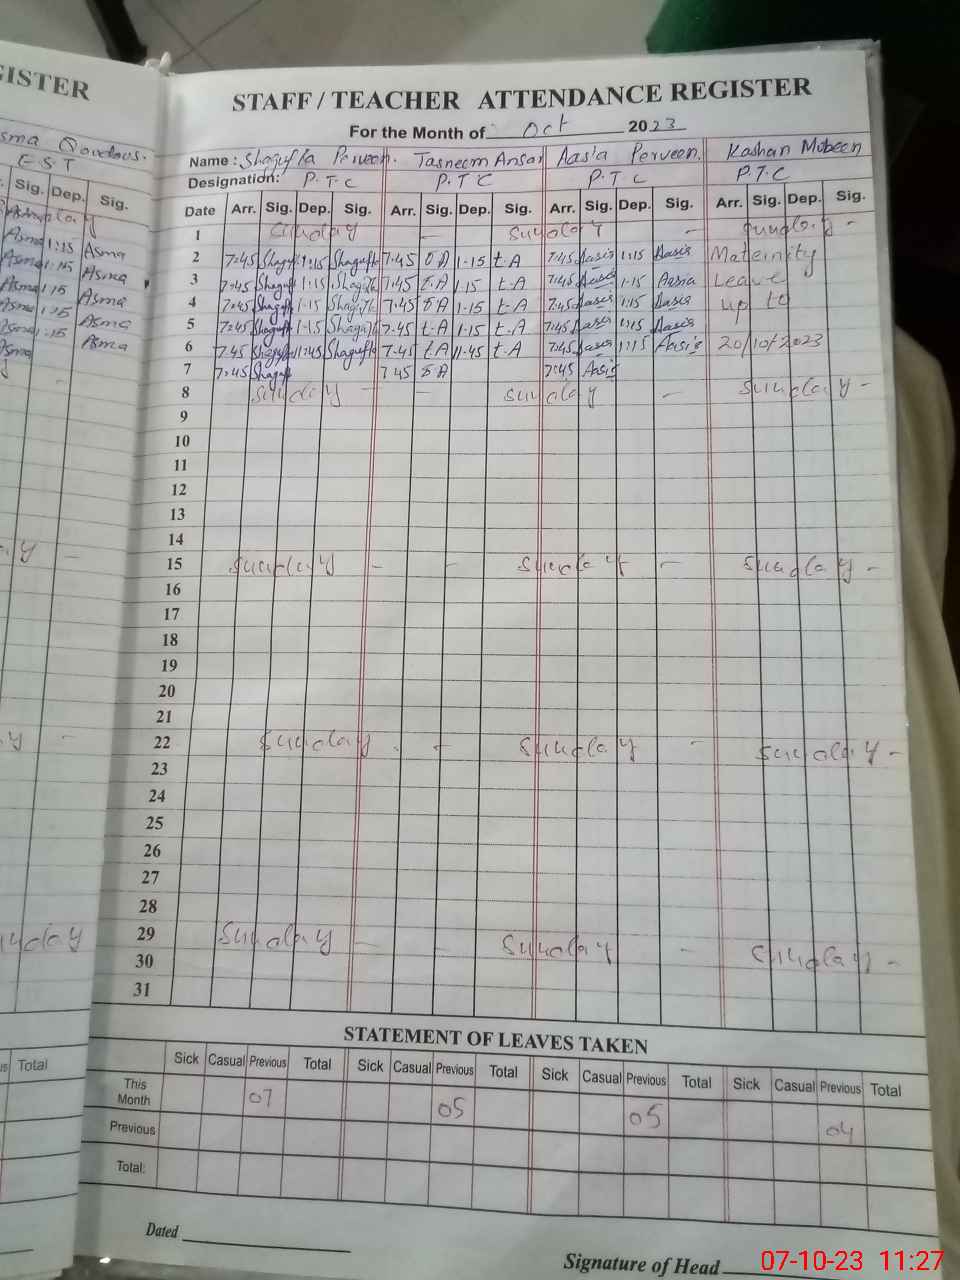 GISTER
sma Qouolous.
E S T
Sig. Dep. Sig.
Asma 1:15 Asma
Asma 1:15 Asma
Asma 1:15 Asma
Asma 1:15 Asma
Asma 1:15 Asma
Total
STAFF / TEACHER ATTENDANCE REGISTER
For the Month of Oct 2023
Name : Shagufta Perveen. Tasneem Ansar Aasia Perveen. Kashan Mobeen
Designation: P.T.C P.T.C P.T.C P.T.C
Date Arr. Sig. Dep. Sig. Arr. Sig. Dep. Sig. Arr. Sig. Dep. Sig. Arr. Sig. Dep. Sig.
1 Sunday - Sunday - Sunday -
2 7:45 Shaguft 1:15 Shagufta 7.45 t.A 1.15 t.A 7:45 Aasia 1:15 Aasia Maternity
3 7:45 Shaguft 1:15 Shagufta 7.45 t.A 1.15 t.A 7:45 Aasia 1.15 Aasia Leave
4 7:45 Shaguft 1-15 Shagufta 7.45 t.A 1-15 t.A 7:45 Aasia 1:15 Aasia up to
5 7:45 Shaguft 1-15 Shagufta 7.45 t.A 1-15 t.A 7:45 Aasia 1:15 Aasia
6 7.45 Shaguft 11:45 Shagufta 7.45 t.A 11.45 t.A 7:45 Aasia 1:15 Aasia 20/10/2023
7 7:45 Shaguft 7 45 t.A 7:45 Aasia
8 Sunday - - Sunday - Sunday -
9
10
11
12
13
14
15 Sunday - - Sunday - Sunday -
16
17
18
19
20
21
22 Sunday - - Sunday - Sunday -
23
24
25
26
27
28
29 Sunday - - Sunday - Sunday -
30
31
STATEMENT OF LEAVES TAKEN
Sick Casual Previous Total Sick Casual Previous Total Sick Casual Previous Total Sick Casual Previous Total
This Month 07 05 05 04
Previous
Total:
Dated
Signature of Head
07-10-23 11:27